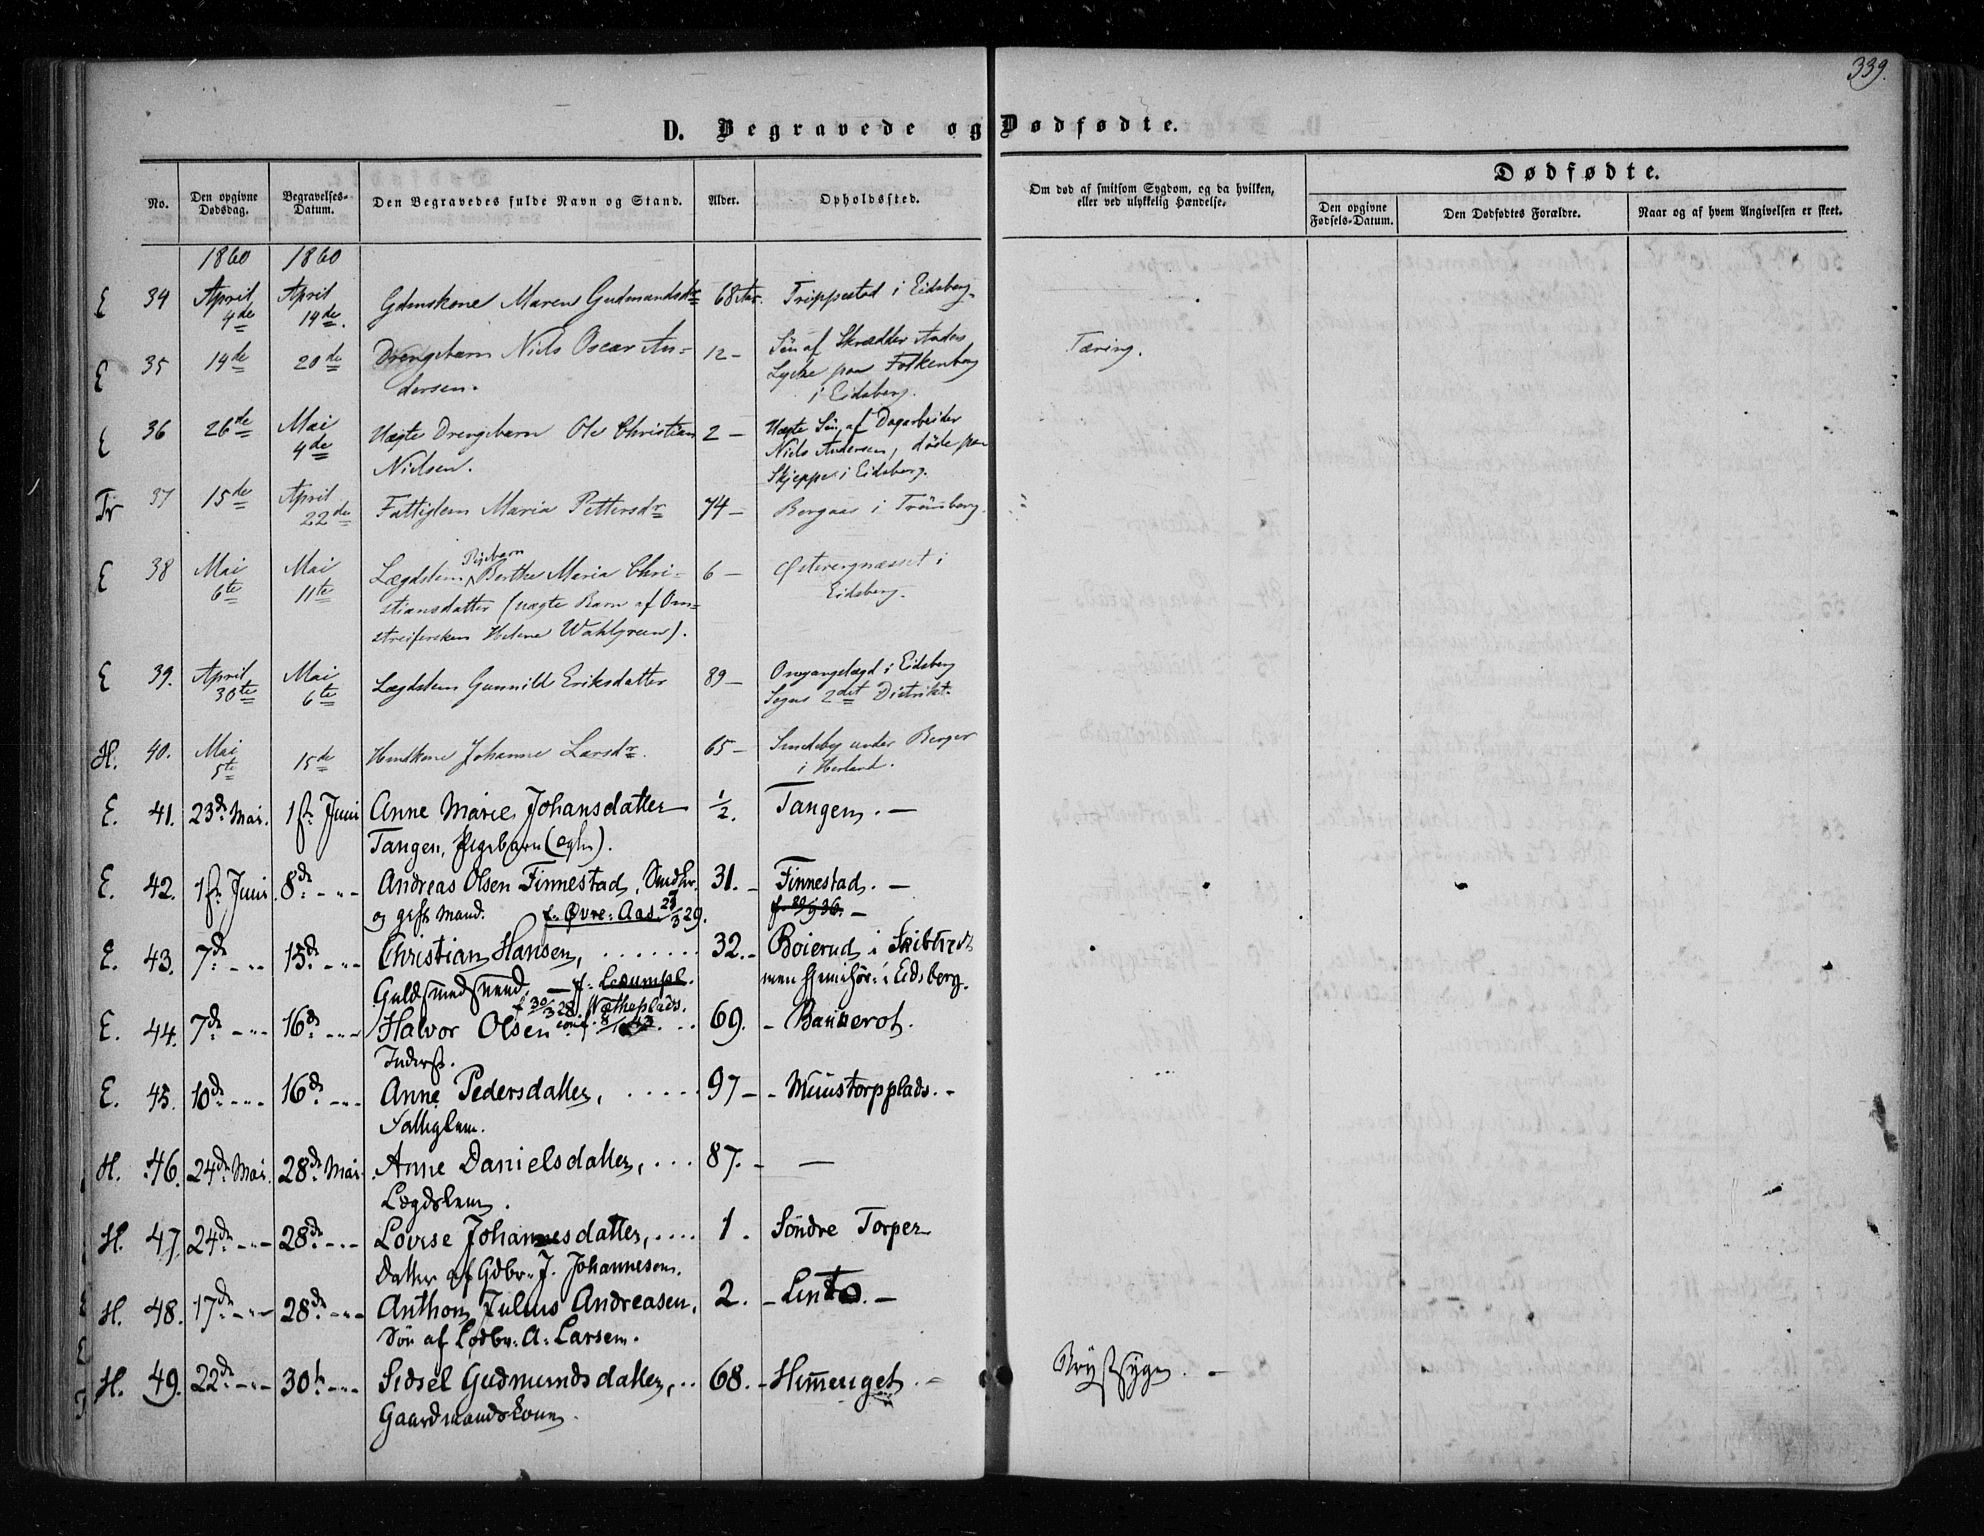 339.
D. Begravede og Dødfødte.
No.
Den opgivne Dødsdag.
Begravelses-Datum.
Den Begravedes fulde Navn og Stand.
Alder.
Opholdssted.
Om død af smitsom Sygdom, og da hvilken, eller ved ulykkelig Hændelse.
Dødfødte.
Den opgivne Fødsels-Datum.
Den Dødfødtes Forældre.
Naar og af hvem Angivelsen er skeet.
1860 1860
E 34 April 4de April 14de. Gdmskone Maren Gudmandsdr 68 Aar. Trippestad i Eidsberg.
E 35 14de 20de Drengebarn Niels Oscar An- 12 - Søn af Skrædder Anders
dersen. Lycke paa Folkenborg
i Eidsberg. Tæring.
E 36 26de Mai 4de Uægte Drengebarn Ole Christian 2 - Uægte Søn af Dagarbeider
Nielsen. Niels Andersen, døde paa
Skjeppe i Eidsberg.
Tr 37 15de April 22de Fattiglem Maria Pettersdr 74 - Bergaas i Trømborg.
E 38 Mai 6te Mai 11te Lægdslem Pigebarn Berthe Maria Chri- 6 - Østerengnæsset i
stiansdatter (uægte Barn af Om- Eidsberg.
streifersken Helene Wahlgreen).
E 39. April 30te Mai 6te Lægdslem Gunnild Eriksdatter 89 - Omgangslægd i Eidsberg
Sogns 2det Distrikt.
H. 40. Mai 5te 15de Huuskone Johanne Larsdr. 65 - Sundsby under Berger
i Herland.
E. 41. 23de Mai. 1ste Juni Anne Marie Johansdatter ½. Tangen. -
Tangen, Pigebarn (ægte).
E. 42. 1ste Juni. 8de - " - Andreas Olsen Finnestad, 31. - Finnestad. -
og gift Mand. f. Øvre-Aas 29/3 29.
E. 43. 7de - " - 15de - " - Christian Hansen, 32. - Boierud i Skibtvedt
Guldsmedsvend. - men i Eidsberg.
f. 30/3 28.
E. 44. 7de - " - 16de - " - Halvor Olsen 69. - Bankerot.
Inderst.
E. 45. 10de - " - 16de - " - Anne Pedersdatter, 97 - - Muustorpplads. -
Fattiglem.
H. 46. 24de Mai. 28de Mai. Anne Danielsdatter, 87. - -
Lægdslem.
H. 47. 24de - " - 28de - " - Lovise Johannesdatter, 1. Søndre Torper
Datter af Gdbr. J. Johannesen.
H. 48. 17de - " - 28de - " - Anthon Julius Andreasen, 2. - Linto. -
Søn af A. Larsen.
H. 49. 22de - " - 30te - " - Sidsel Gudmundsdatter, 68. - Himmeriget. - Brystsyge. -
Gaardmandskone.